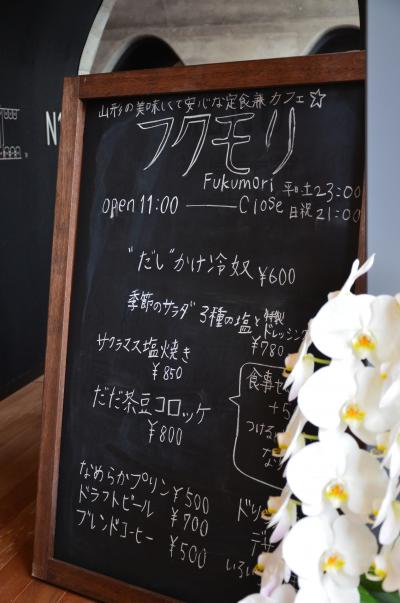 山形の美味しくて安心な定食兼カフェ☆
フクモリ
Fukumori
open 11:00 — Close 平日土23:00
日祝21:00
"だし"かけ冷奴 ¥600
季節のサラダ 3種の塩と特製ドレッシング
¥780
サクラマス塩焼き
¥850
だだ茶豆コロッケ
¥800
食事セ
+5
つける
なめらかプリン ¥500
ドラフトビール ¥700
ブレンドコーヒー ¥500
ドリ
デザ
いろい